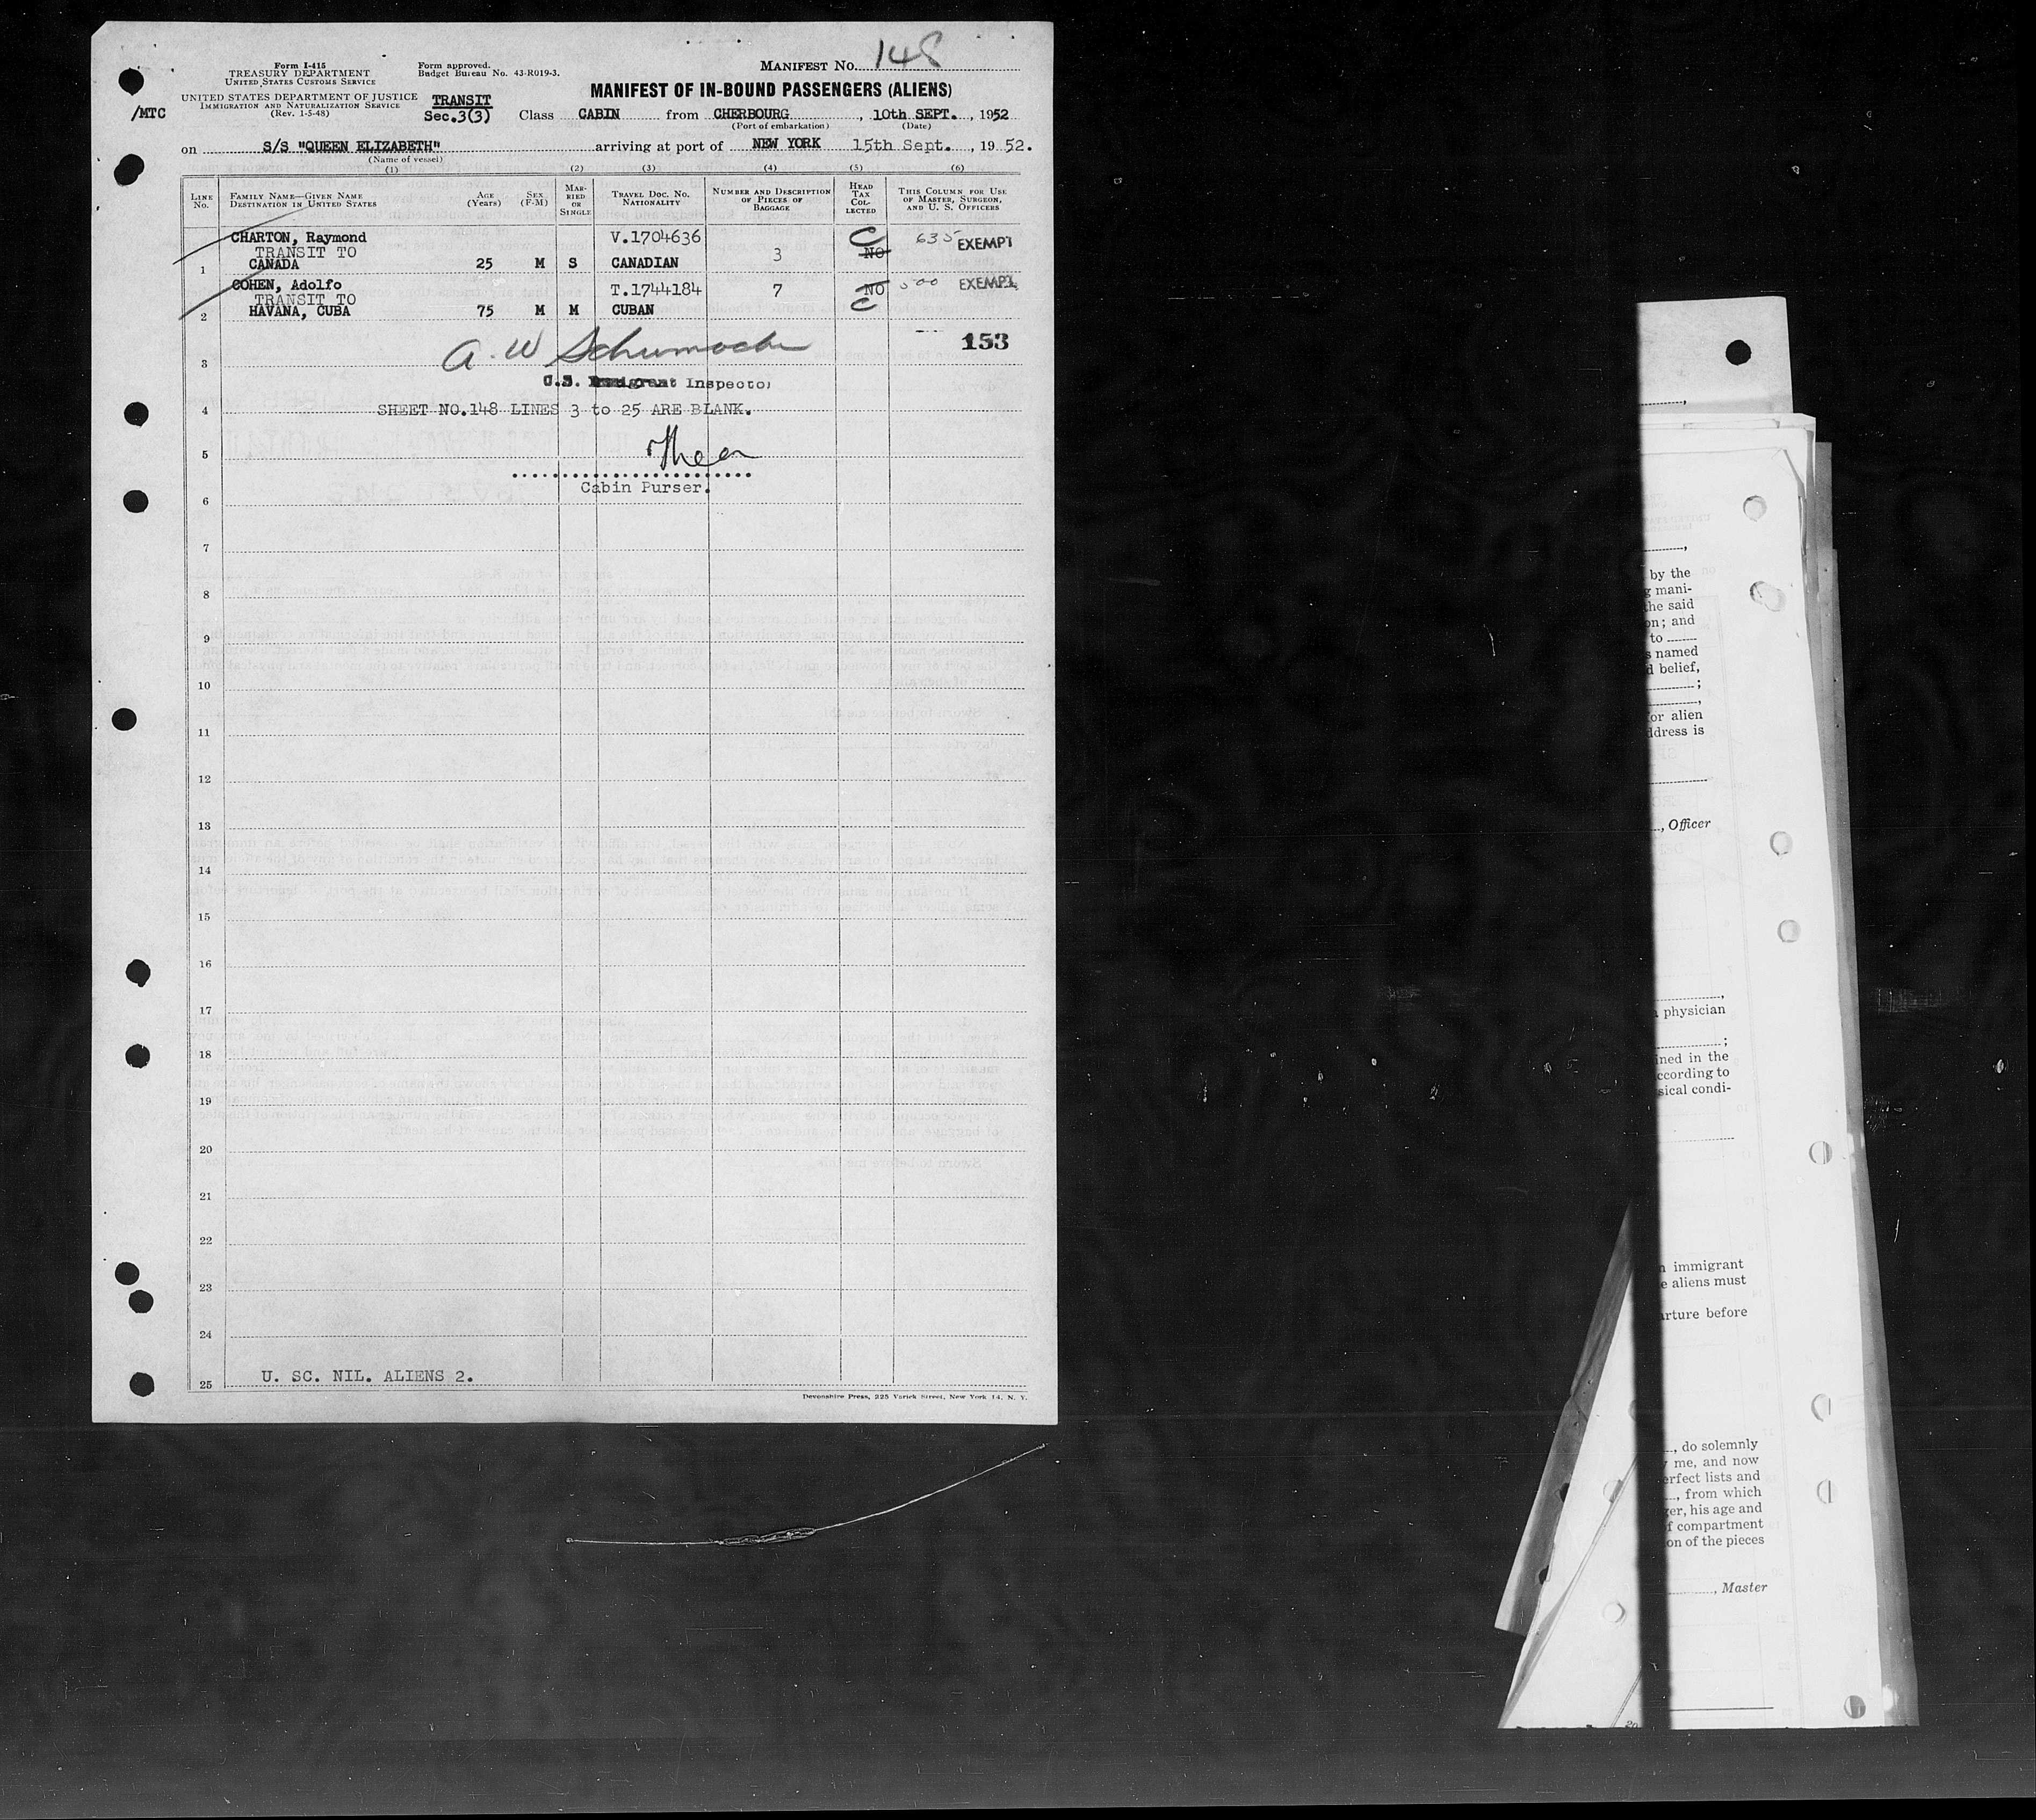 Form I-415
TREASURY DEPARTMENT
UNITED STATES CUSTOMS SERVICE
UNITED STATES DEPARTMENT OF JUSTICE
IMMIGRATION AND NATURALIZATION SERVICE
(Rev. 1-5-48)
Form approved.
Budget Bureau No. 43-R019-3.
MANIFEST NO. 148
/MTC
TRANSIT
Sec.3(3)
MANIFEST OF IN-BOUND PASSENGERS (ALIENS)
Class CABIN from CHERBOURG, 10th SEPT., 1952
(Port of embarkation) (Date)
on S/S "QUEEN ELIZABETH" arriving at port of NEW YORK 15th Sept., 19 52.
(Name of vessel)
(1) (2) (3) (4) (5) (6)
LINE No. FAMILY NAME—GIVEN NAME DESTINATION IN UNITED STATES AGE (Years) SEX (F-M) MARRIED OR SINGLE TRAVEL DOC. NO. NATIONALITY NUMBER AND DESCRIPTION OF PIECES OF BAGGAGE HEAD TAX COLLECTED THIS COLUMN FOR USE OF MASTER, SURGEON, AND U. S. OFFICERS
CHARTON, Raymond V.1704636 C 635 EXEMPT
TRANSIT TO 3 NO
1 CANADA 25 M S CANADIAN
COHEN, Adolfo T.1744184 7 NO 500 EXEMPT
TRANSIT TO C
2 HAVANA, CUBA 75 M M CUBAN
153
3 A. W Schumacher
U.S. Immigrant Inspector
4 SHEET NO.148 LINES 3 to 25 ARE BLANK.
5
Cabin Purser.
6
7
8
9
10
11
12
13
14
15
16
17
18
19
20
21
22
23
24
25 U. SC. NIL. ALIENS 2.
Devonshire Press, 225 Varick Street, New York 14, N. Y.
by the
mani-
the said
on; and
to
s named
belief,
;
,
or alien
dress is
, Officer
,
physician
;
ined in the
ccording to
sical condi-
immigrant
e aliens must
rture before
, do solemnly
me, and now
erfect lists and
, from which
er, his age and
f compartment
on of the pieces
, Master